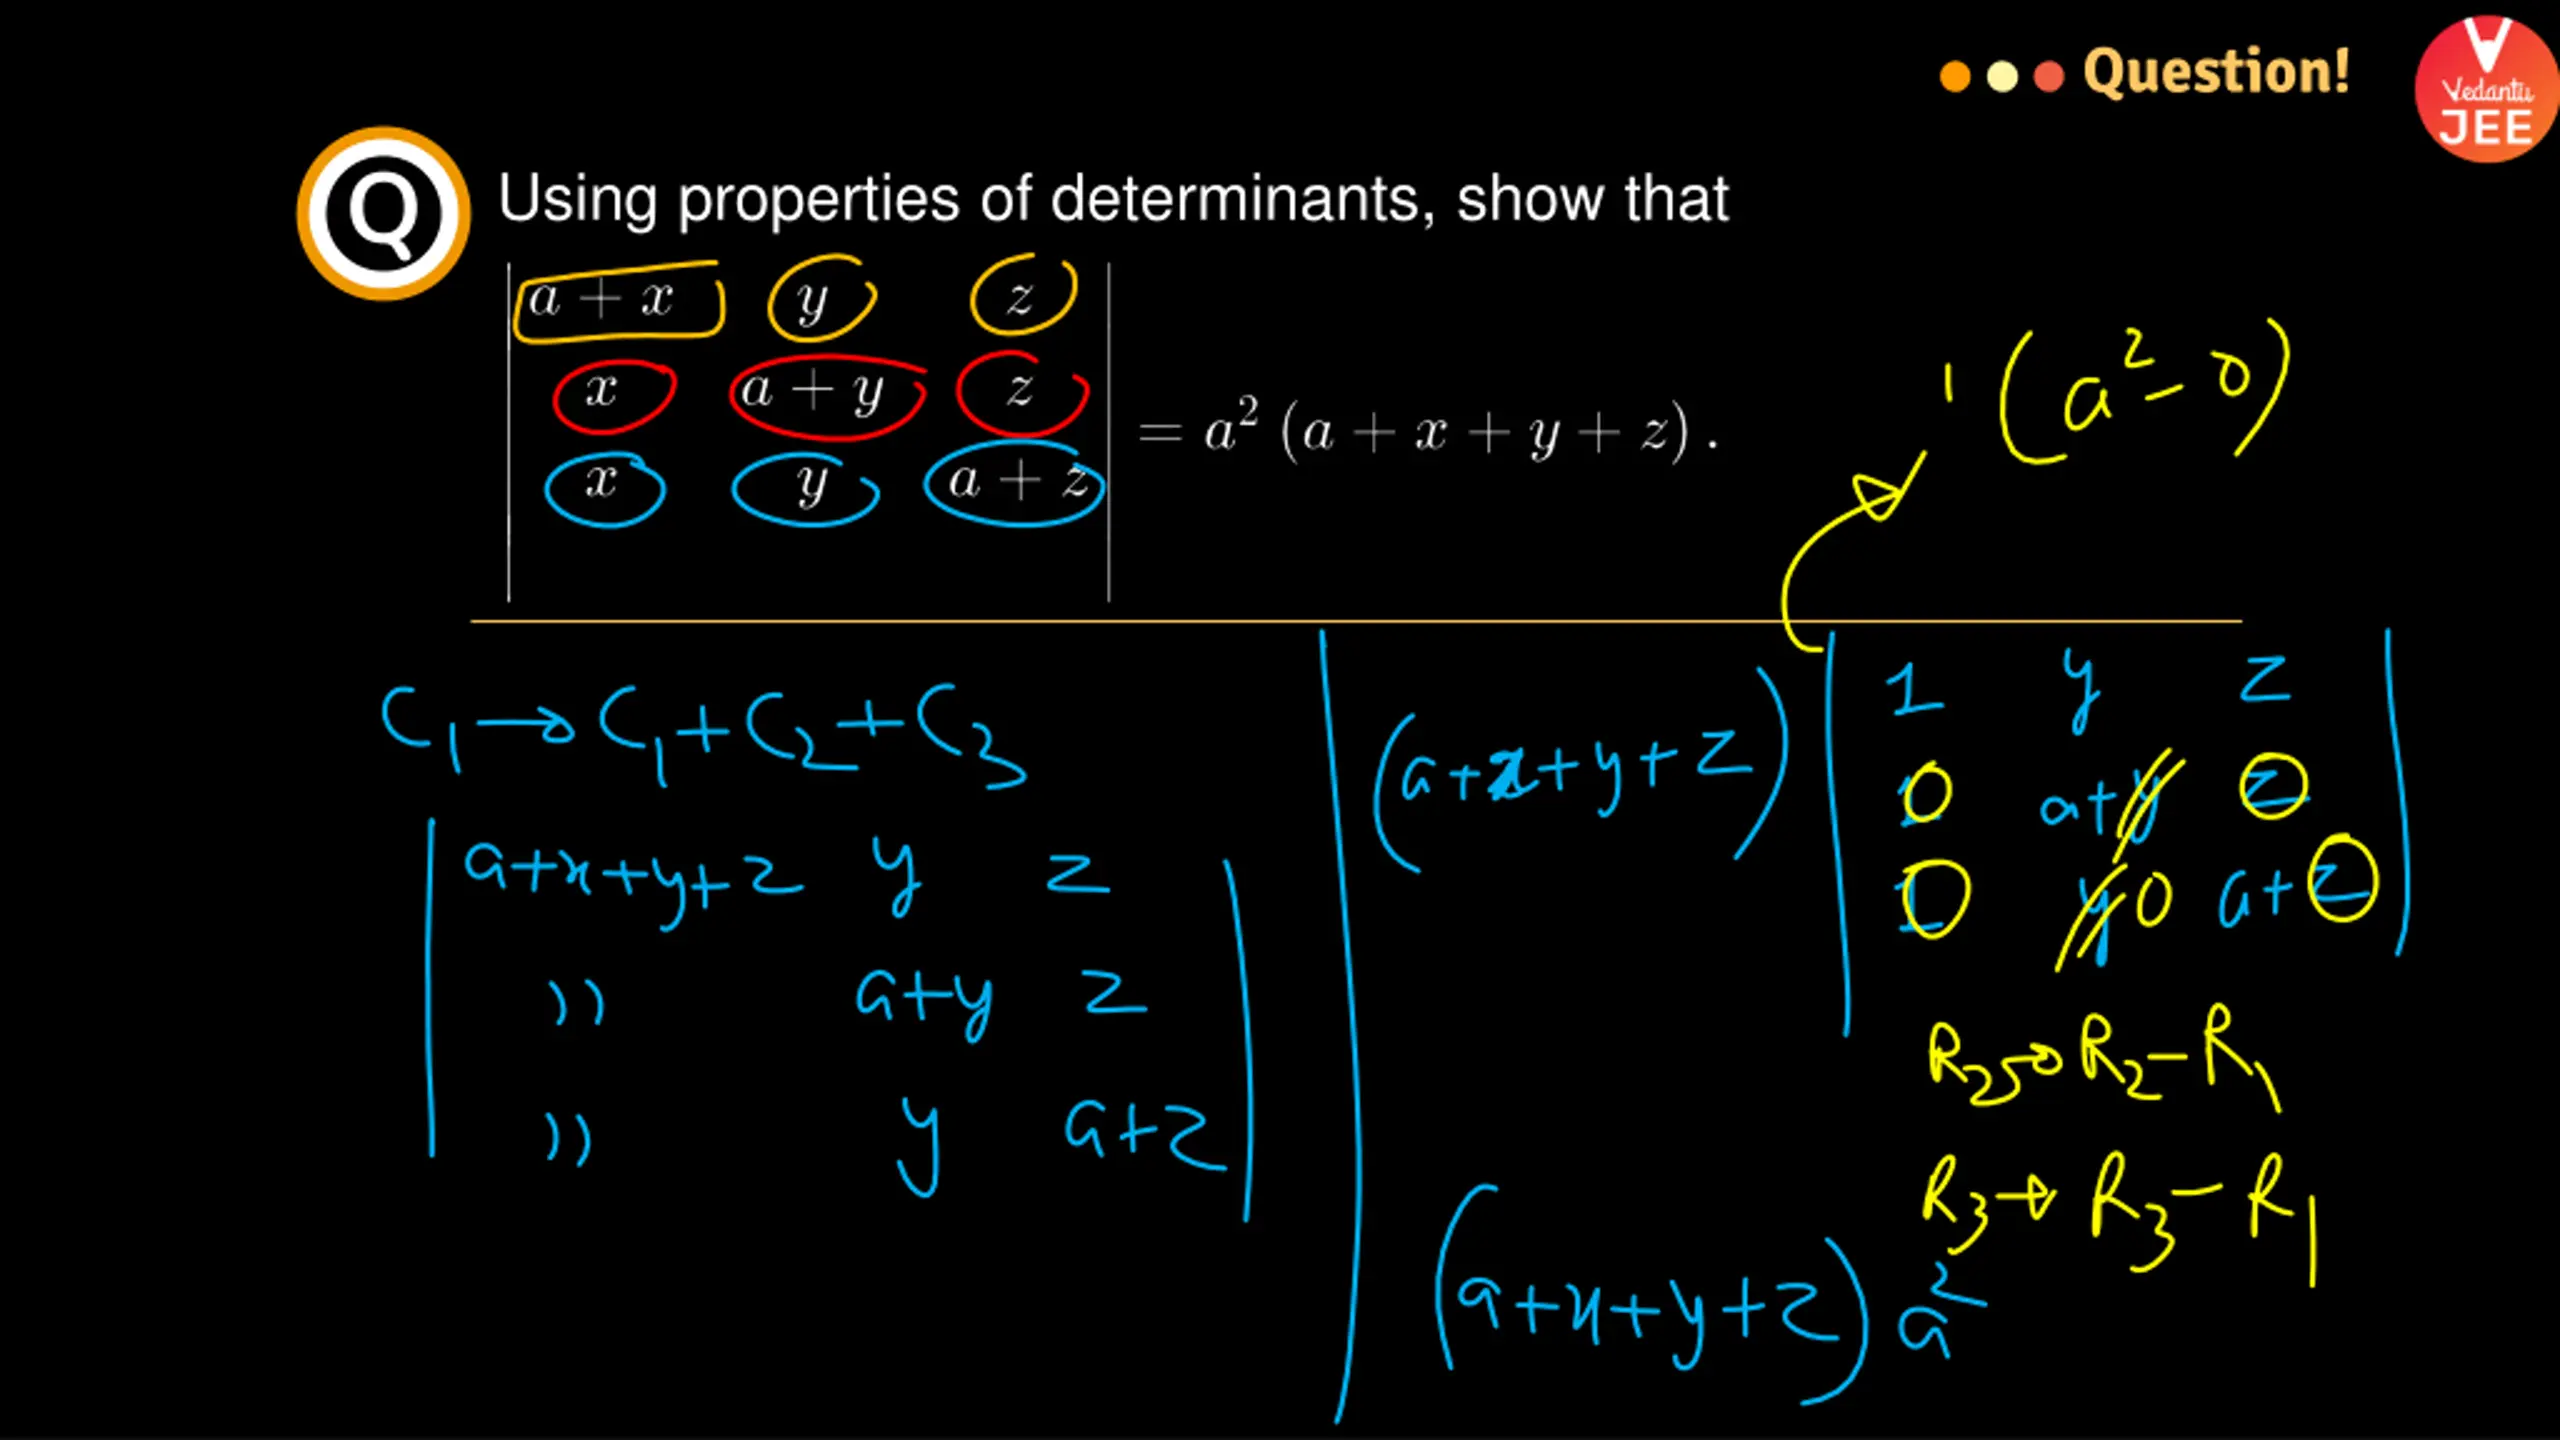 Question!
Vedantu
JEE
Q
Using properties of determinants, show that
a + x y z
x a + y z
x y a + z
= a² (a + x + y + z).
1 (a² - 0)
C₁ → C₁ + C₂ + C₃
a+x+y+z y z
)) a+y z
)) y a+z
(a+x+y+z)
1 y z
0 a+y z
0 y 0 a+z
R₂ → R₂ - R₁
R₃ → R₃ - R₁
(a+x+y+z) a²